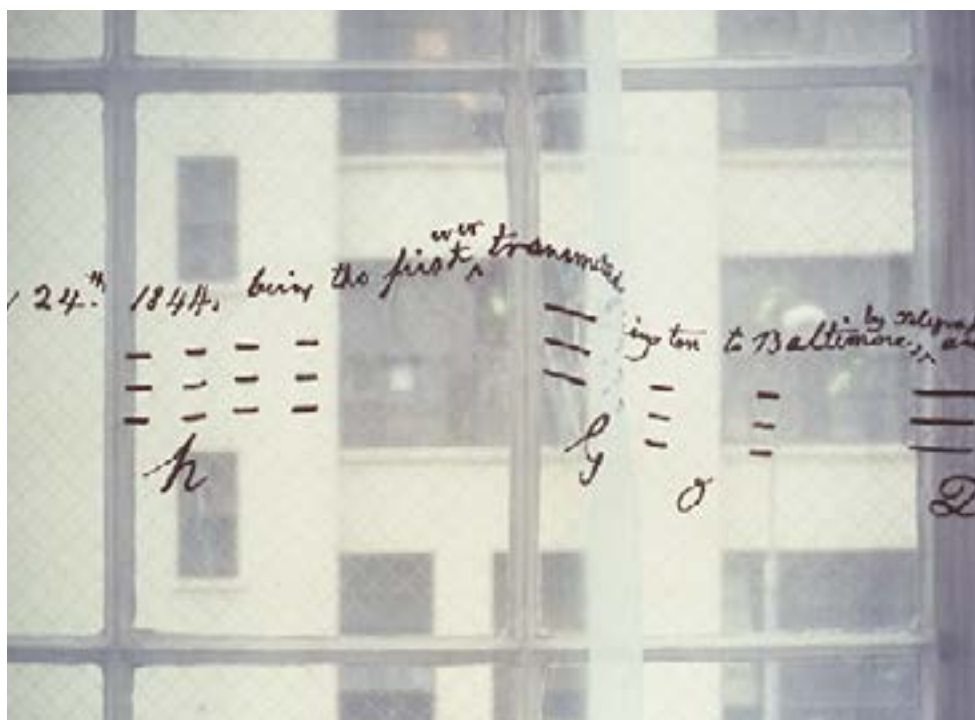 24.th 1844, being the first ever transm
ington to Baltimore, by Telegra
h G o D